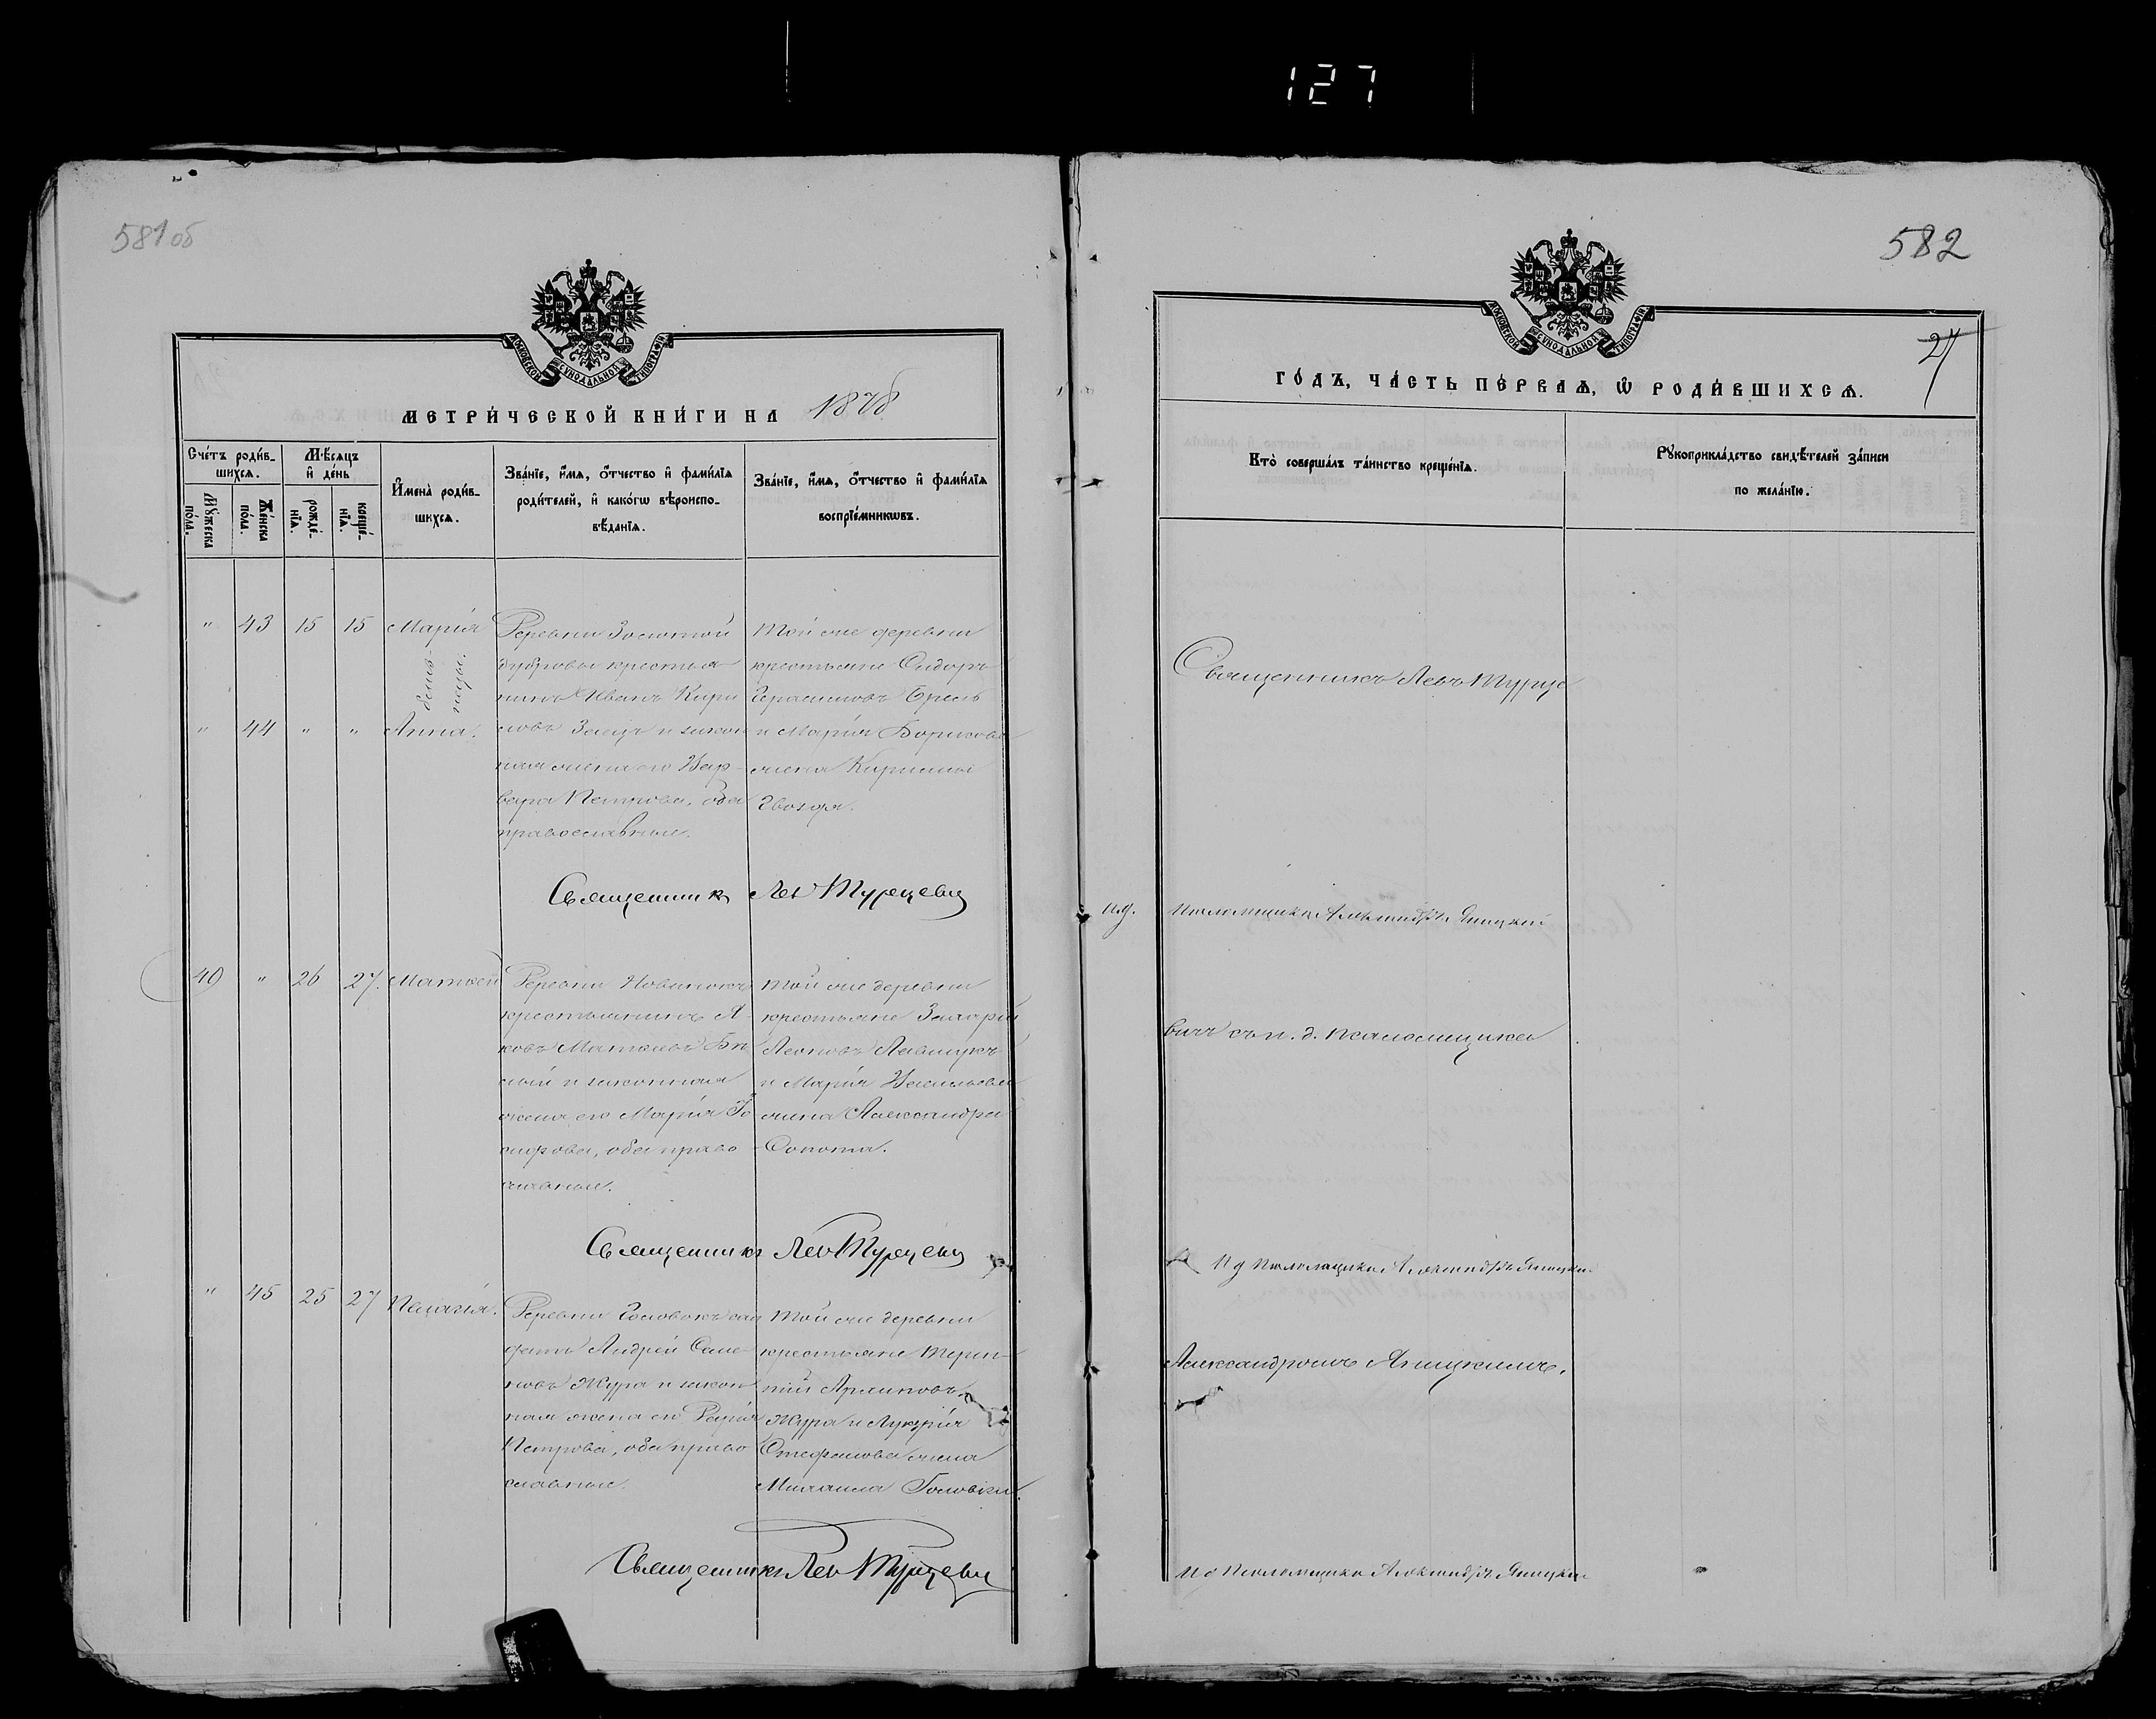 127
581об
МОСКОВСКОЙ СѴНОДАЛЬНОЙ ТИПОГРАФІИ
МЕТРИ́ЧЕСКОЙ КНИ́ГИ НА 1878
Сче́тъ роди́в-
шихсѧ.
Мꙋ́жеска
по́ла.
Же́нска
по́ла.
Мѣ́сѧцъ
и҆ де́нь
рожде́-
нїѧ.
креще́-
нїѧ.
И҆мена̀ роди́в-
шихсѧ.
Зва́нїе, и҆́мѧ, ѻ҆́тчество и҆ фами́лїѧ
роди́телей, и҆ како́гѡ вѣроиспо-
вѣ́данїѧ.
Зва́нїе, и҆́мѧ, ѻ҆́тчество и҆ фами́лїѧ
воспрїе́мникѡвъ.
" 43 15 15 Марія
близ-
нецы.
" 44 " " Анна.
Деревни Золотой
дубровы крестья-
нинъ Иванъ Кири
ловъ Заяцъ и закон
ная жена его Вар-
вара Петрова, оба
православные.
Той же деревни
крестьяне Сидоръ
Герасимовъ
и Марія Борисова
жена Кириллы
Гвоздя.
Священникъ Левъ Турцевичъ
40 " 26 27. Матѳей
Деревни Новинокъ
крестьянинъ Я-
ковъ Матѳеевъ Бѣ
лый и законная
жена его Марія
оба право
славные.
Той же деревни
крестьяне Захарій
Леоновъ Левчукъ
и Марія Васильева
жена Александра
Сопота.
Священникъ Левъ Турцевичъ
" 45 25 27 Пелагія.
Деревни Головокъ сол
датъ Андрей Семе-
новъ Жура и закон
ная жена его Дарія
Петрова, оба право
славные.
Той же деревни
крестьяне Терен-
тій
Жура и Лукерія
Стефанова жена
Михаила Головки.
Священникъ Левъ Турцевичъ
582
МОСКОВСКОЙ СѴНОДАЛЬНОЙ ТИПОГРАФІИ
ГО́ДЪ, ЧА́СТЬ ПЕ́РВАѦ, Ѡ҆ РОДИ́ВШИХСѦ.
Кто̀ соверша́лъ та́инство креще́нїѧ.
Рꙋкоприкла́дство свидѣ́телей за́писи
по жела́нїю.
Священникъ Левъ Турце
и.д. Псаломщика Александръ Яницкій
вичъ съ и. д. Псаломщика
И д Псаломщика Александръ Яницкій
Александромъ Яницкимъ.
И д Псаломщика Александръ Яницкій